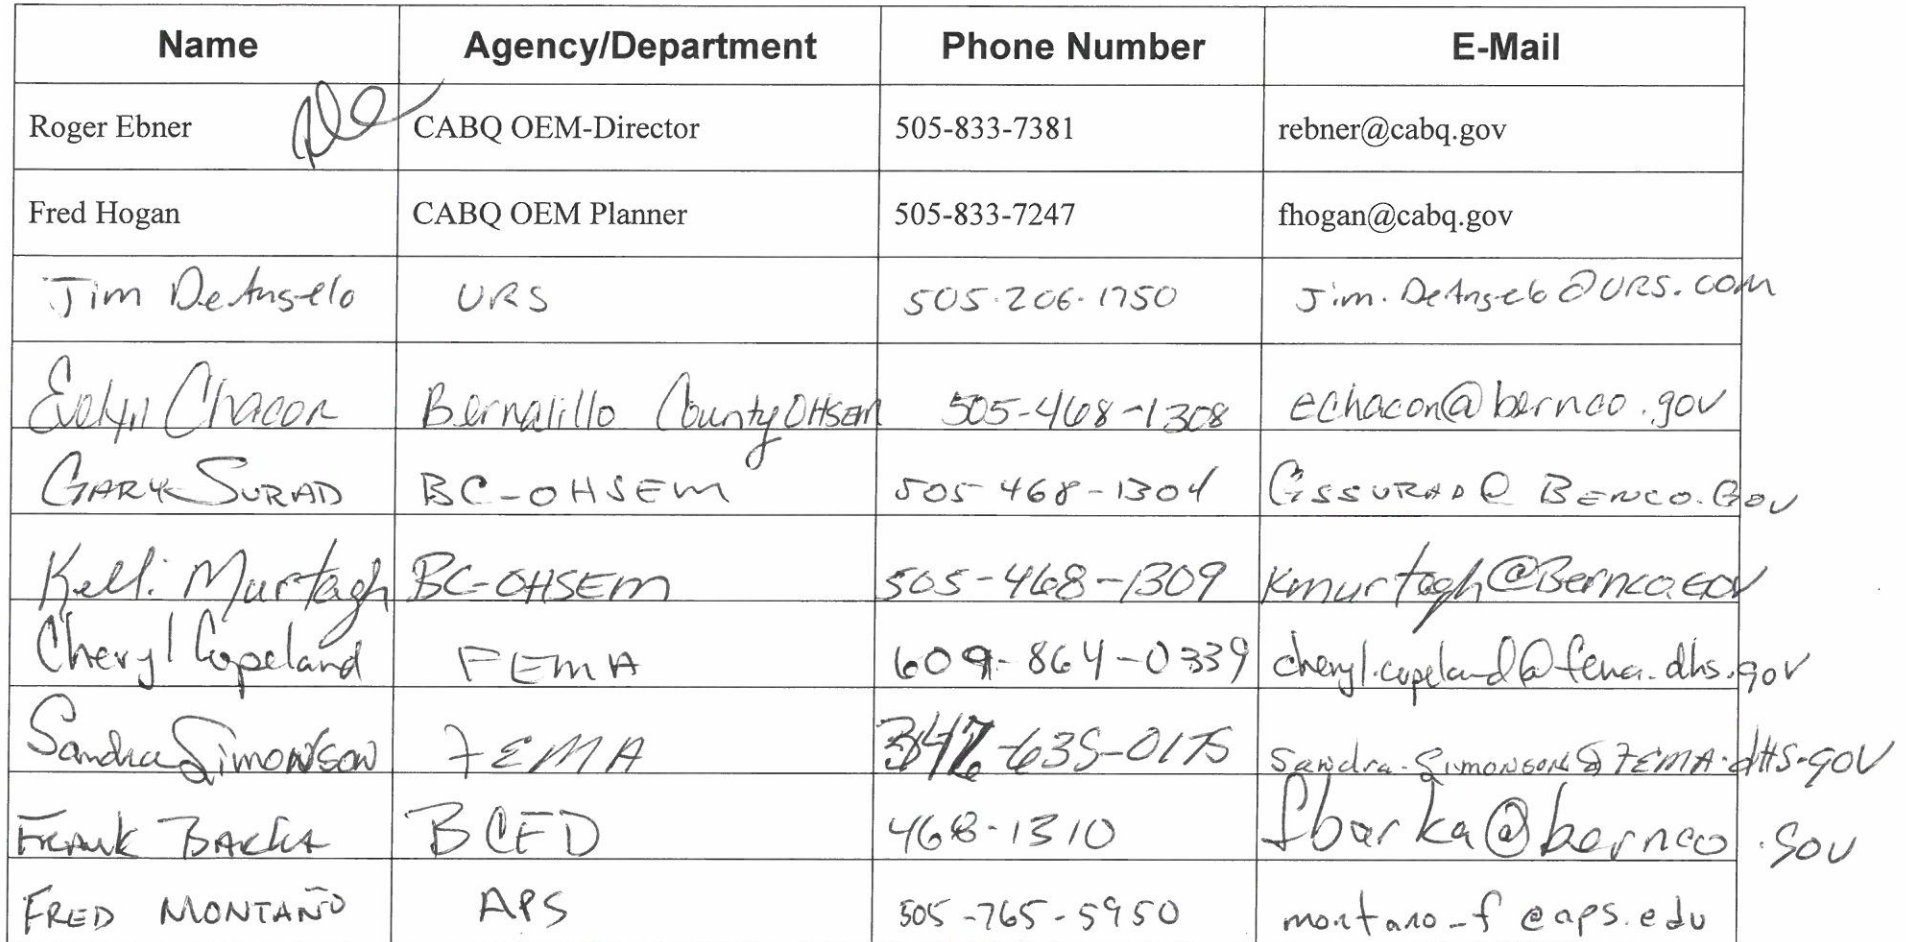 Name Agency/Department Phone Number E-Mail
Roger Ebner CABQ OEM-Director 505-833-7381 rebner@cabq.gov
Fred Hogan CABQ OEM Planner 505-833-7247 fhogan@cabq.gov
Jim DeAngelo URS 505-206-1750 Jim.DeAngelo@URS.com
Evelyn Chacon Bernalillo County OHSEM 505-468-1308 echacon@bernco.gov
GARY SURAD BC-OHSEM 505 468-1304 GSSURAD@BENCO.GOV
Kelli Murtagh BC-OHSEM 505-468-1309 Kmurtagh@Bernco.GOV
Cheryl Copeland FEMA 609-864-0339 cheryl.copeland@fema.dhs.gov
Sandra Simonson FEMA 347-635-0175 Sandra.Simonson@FEMA.dHS.gov
FRANK BARKA BCFD 468-1310 fbarka@bernco.gov
FRED MONTAÑO APS 505-765-5950 montano_f@aps.edu